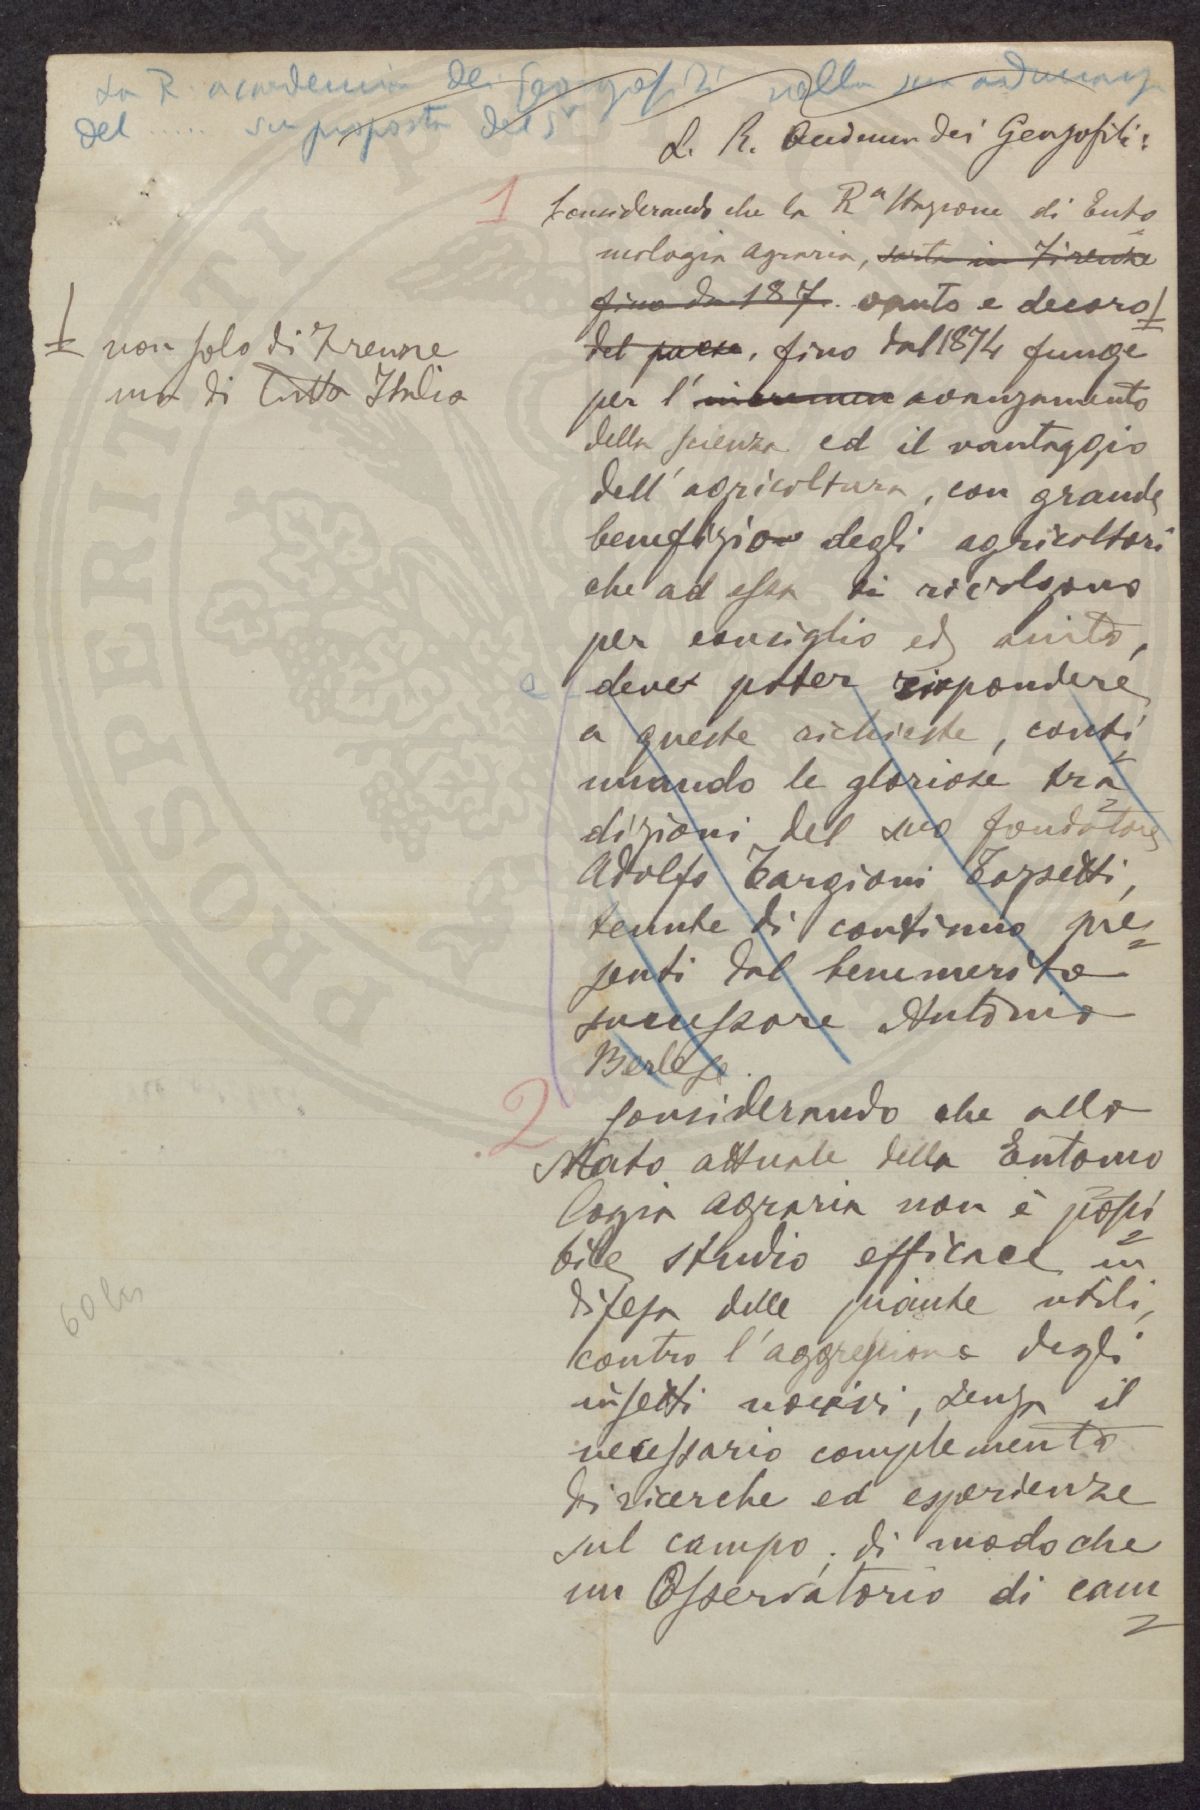 La R. accademia dei Georgofili nella sua adunanza
del ..... su proposta del Sr
L. R. Accademia dei Georgofili:
1 Considerando che la Ra Stazione di Ento
mologia agraria, sorta in Firenze
fino da 187.. vanto e decoro
del paese, fino dal 1874 funge
non solo di Firenze
ma di tutta Italia
per l' avanzamento
della scienza ed il vantaggio
dell'agricoltura, con grande
benefizio degli agricoltori
che ad essa si rivolgono
per consiglio ed aiuto,
e deve poter rispondere
a queste richieste, conti
nuando le gloriose tra
dizioni del suo fondatore
Adolfo Targioni Tozzetti,
tenute di continuo pre
senti dal benemerito
successore Antonio
Berlese.
2 Considerando che allo
stato attuale della Entomo
logia agraria non è possi
bile studio efficace in
difesa delle piante utili,
contro l'aggressione degli
insetti nocivi, senza il
necessario complemento
di ricerche ed esperienze
sul campo; di modo che
un Osservatorio di cam
60 bis
PROSPERITATI